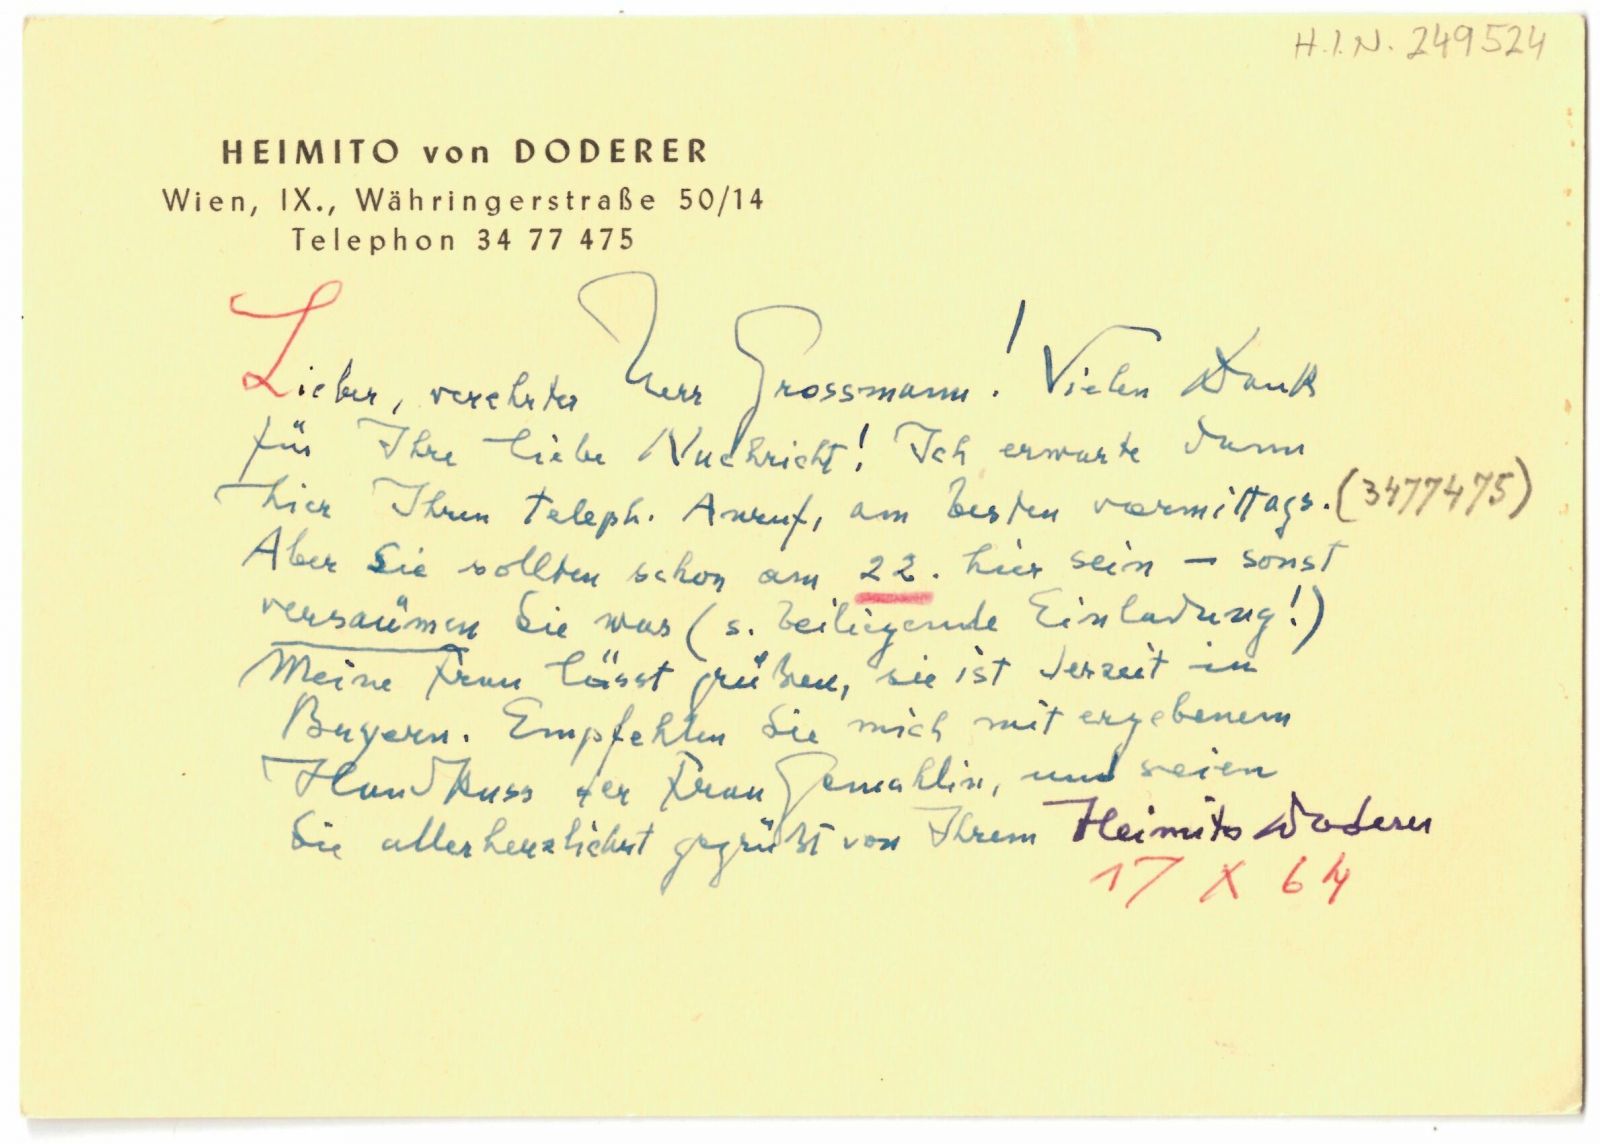 H.I.N. 249524
HEIMITO von DODERER
Wien, IX., Währingerstraße 50/14
Telephon 34 77 475
Lieber, verehrter Herr Grossmann! Vielen Dank
für Ihre liebe Nachricht! Ich erwarte dann
hier Ihren teleph. Anruf, am besten vormittags. (3477475)
Aber Sie sollten schon am 22. hier sein – sonst
versäumen Sie was (s. beiliegende Einladung!)
Meine Frau lässt grüßen, sie ist derzeit in
Bayern. Empfehlen Sie mich mit ergebenem
Handkuss der Frau Gemahlin, und seien
Sie allerherzlichst gegrüßt von Ihrem Heimito Doderer
17 X 64